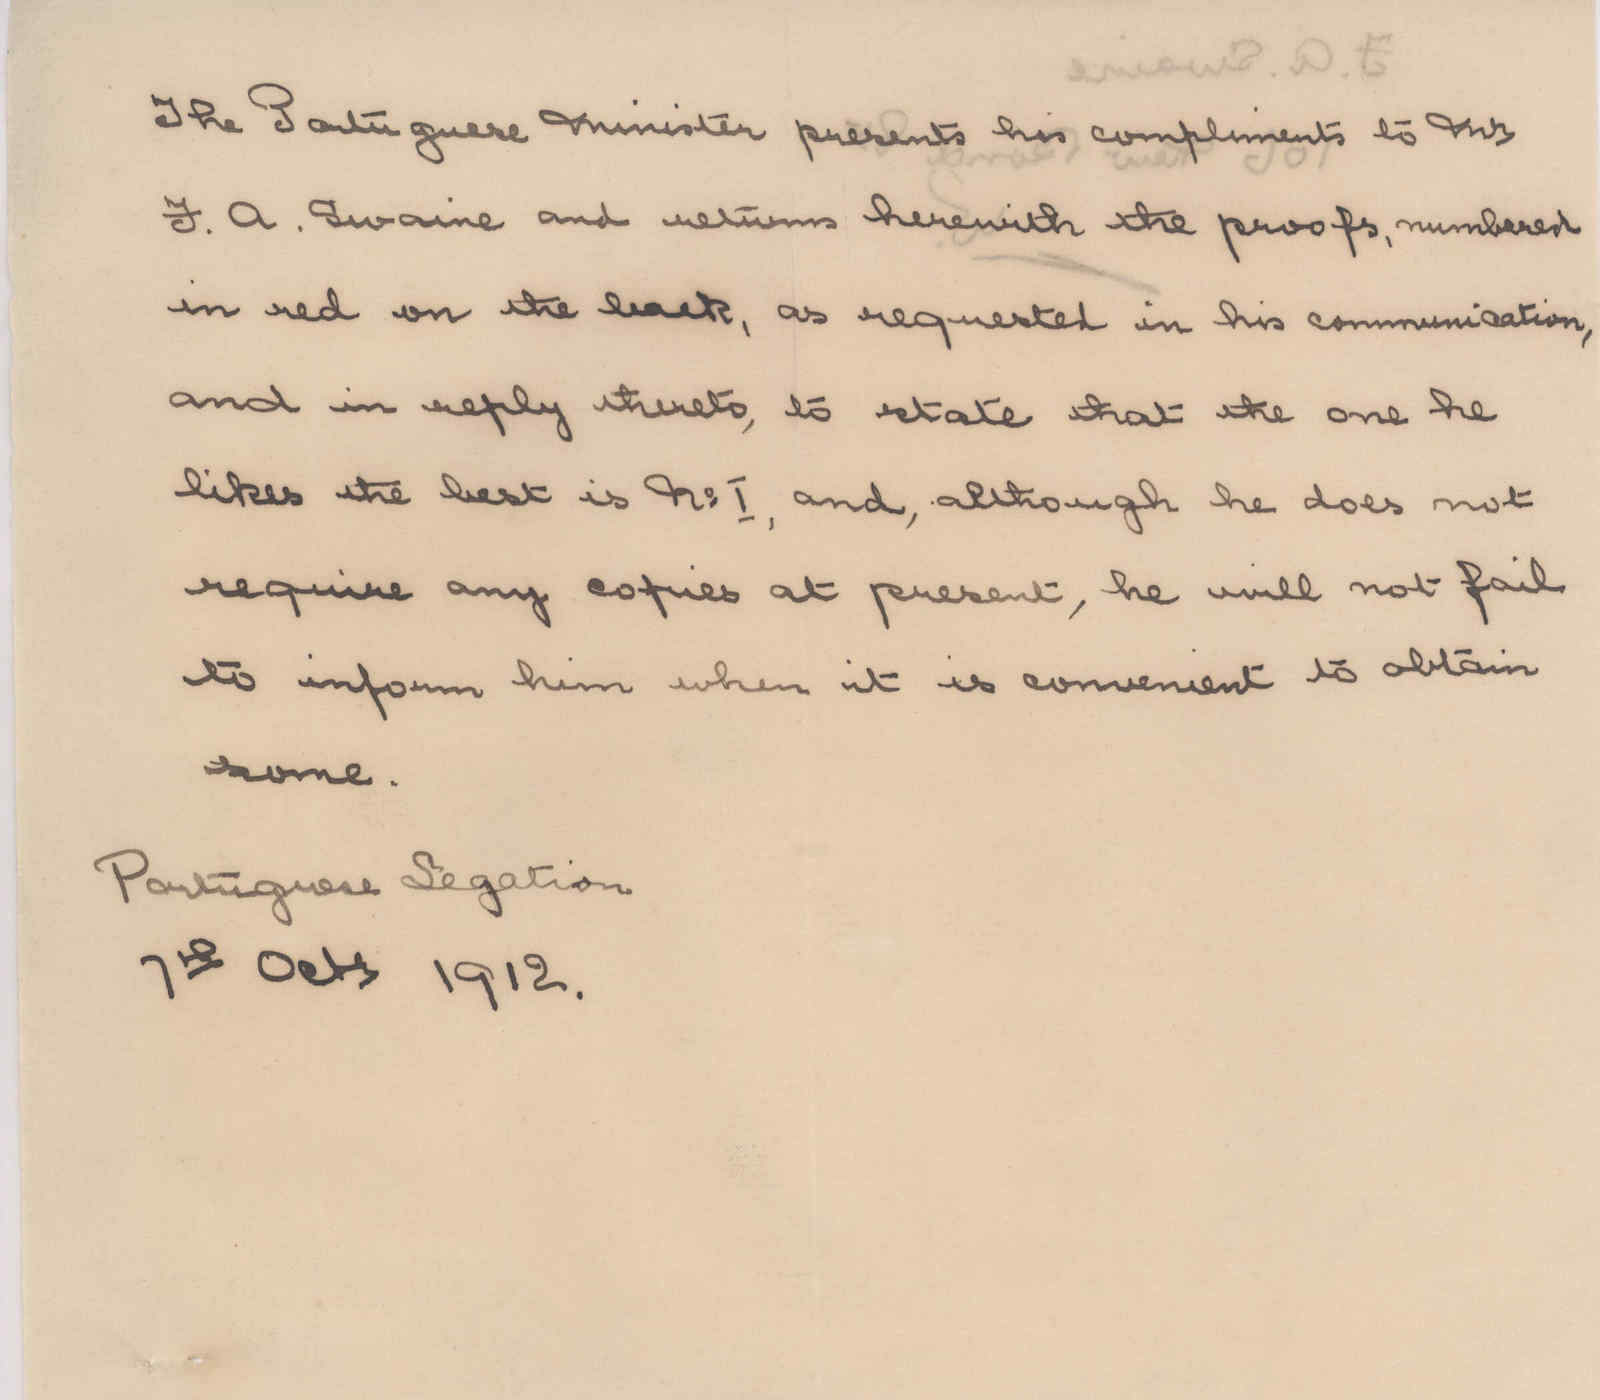 The Portuguese Minister presents his compliments to Mr
F. A. Swaine and returns herewith the proofs, numbered
in red on the back, as requested in his communication,
and in reply thereto, to state that the one he
likes the best is No I, and, although he does not
require any copies at present, he will not fail
to inform him when it is convenient to obtain
some.
Portuguese Legation
7th Octr 1912.
F. A. Swaine
146 New Bond